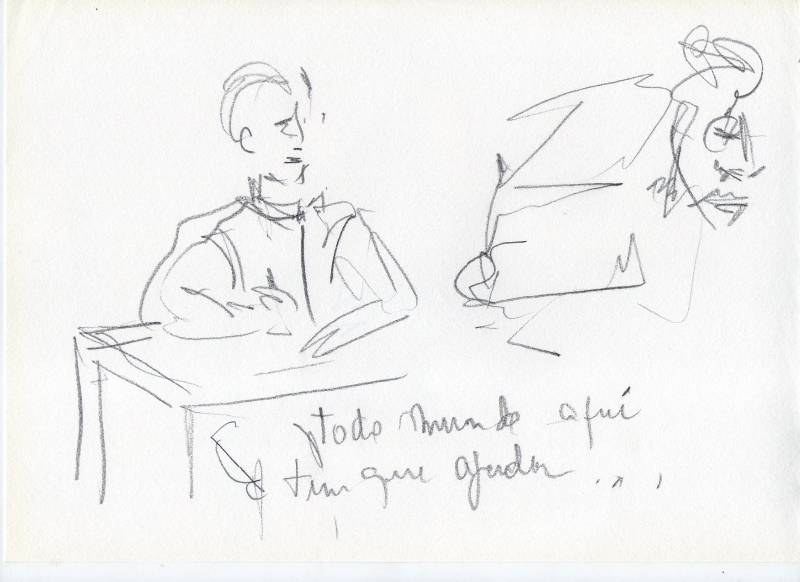 todo mundo aqui
tem que ajudar . . .